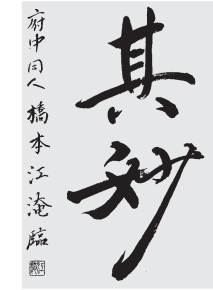 其妙
府中同人 橋本江淹臨